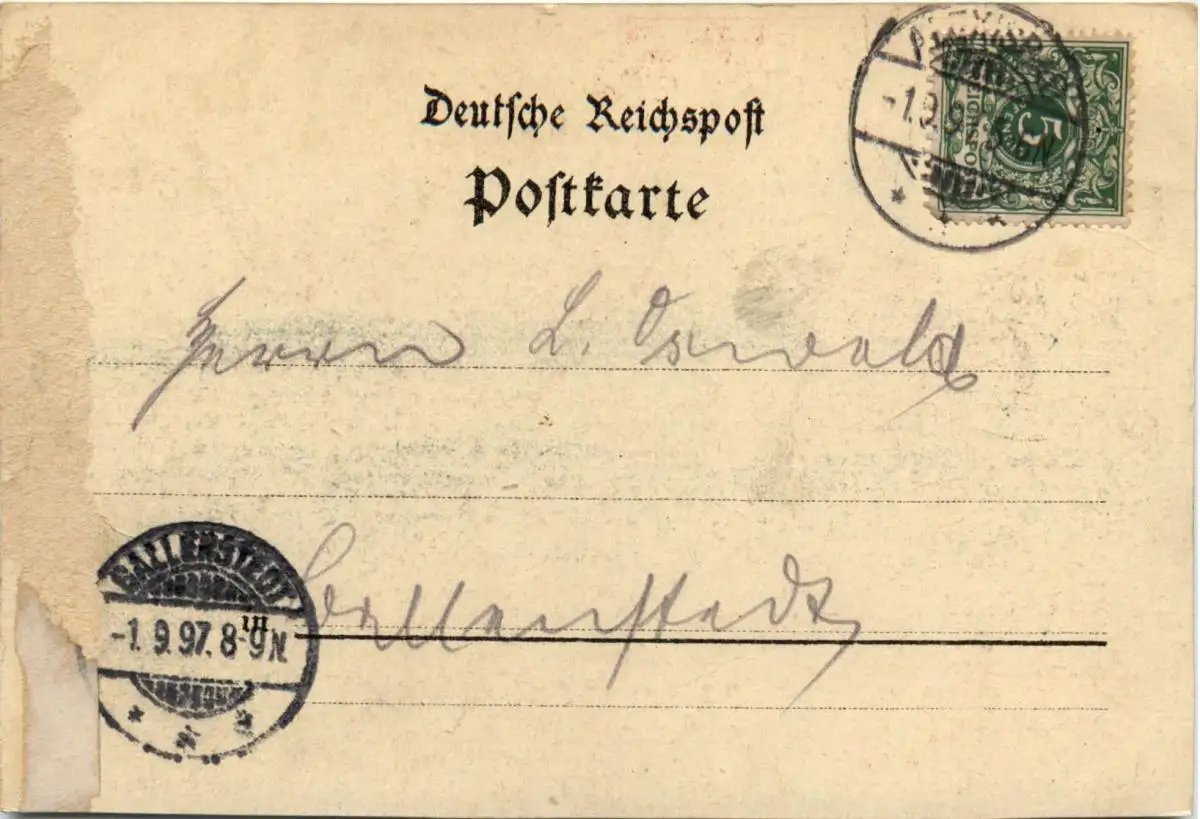 Deutsche Reichspost
Postkarte
5
Herrn L. Oswald
BALLENSTEDT
-1. 9. 97. 8-9 N.
in
Ballenstedt